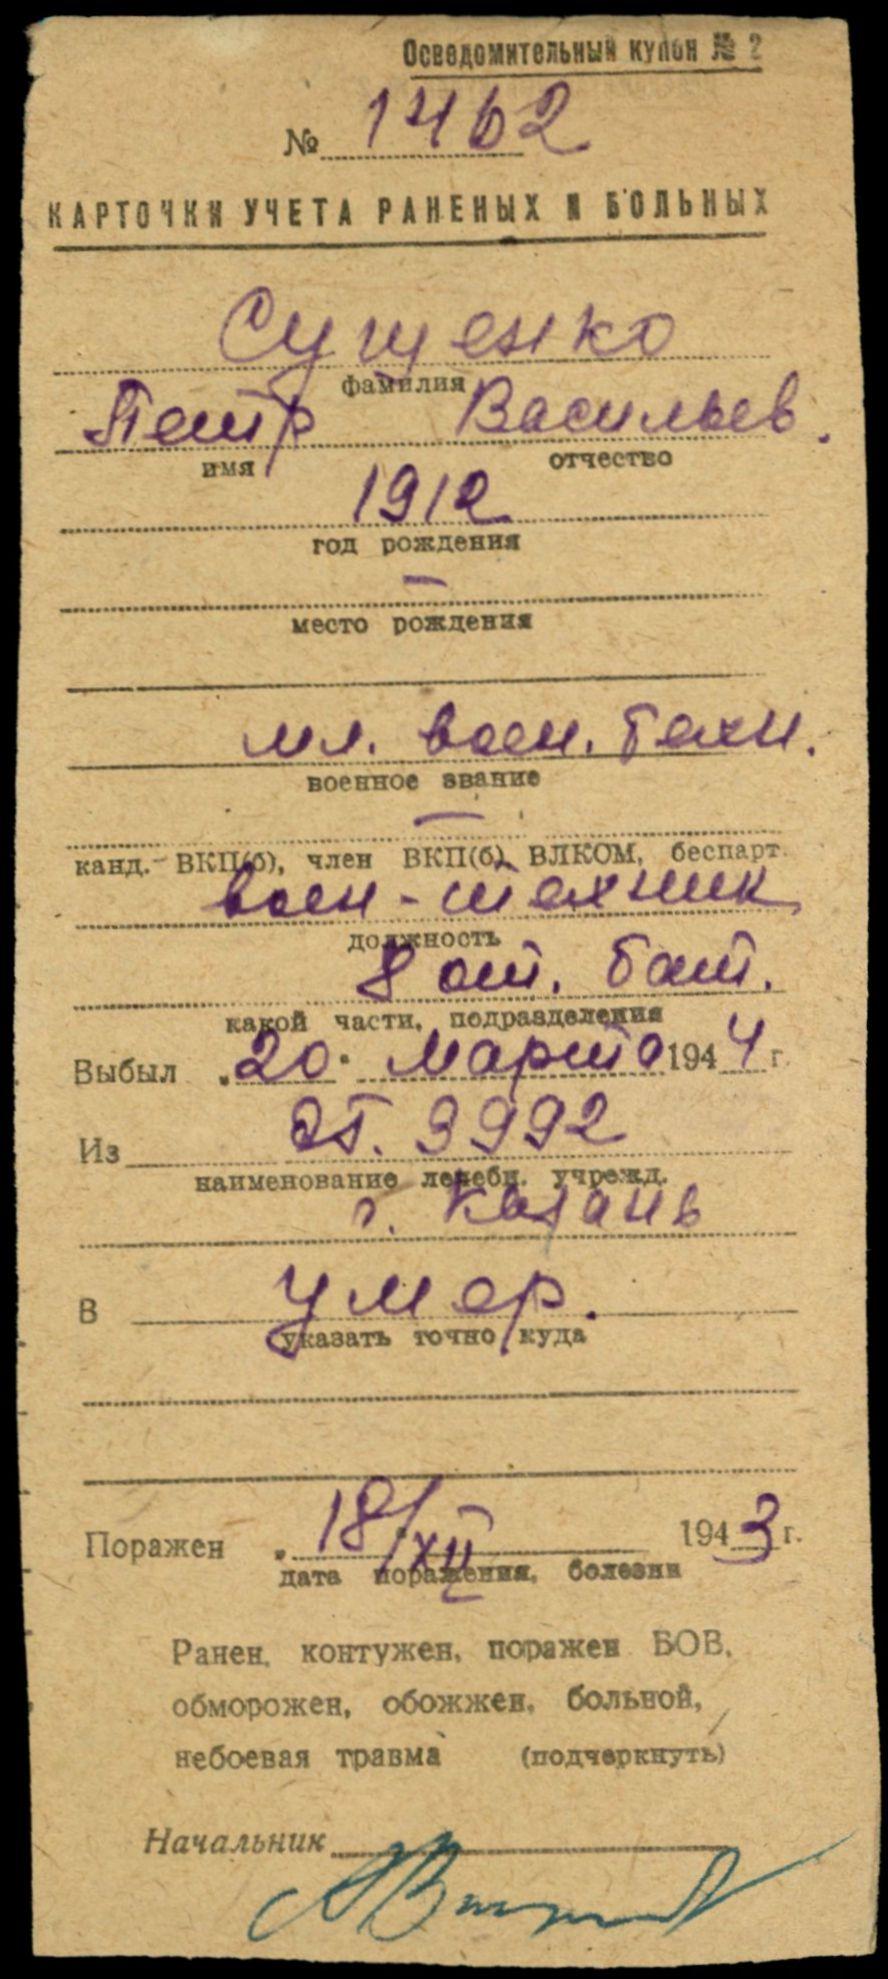 Осведомительный купон № 2
№ 1462
КАРТОЧКИ УЧЕТА РАНЕНЫХ И БОЛЬНЫХ
Сущенко
фамилия
Петр Васильев.
имя отчество
1912
год рождения
—
место рождения
мл. воен. техн.
военное звание
—
канд. ВКП(б), член ВКП(б) ВЛКОМ, беспарт.
воен-техник
должность
8 от. бат.
какой части, подразделения
Выбыл "20" марта 1944 г.
Из ЭГ. 3992
наименование лечебн. учрежд.
г. Казань
В умер.
указать точно куда
Поражен 18/XII 1943 г.
дата поражения, болезни
Ранен, контужен, поражен БОВ,
обморожен, обожжен, больной,
небоевая травма (подчеркнуть)
Начальник